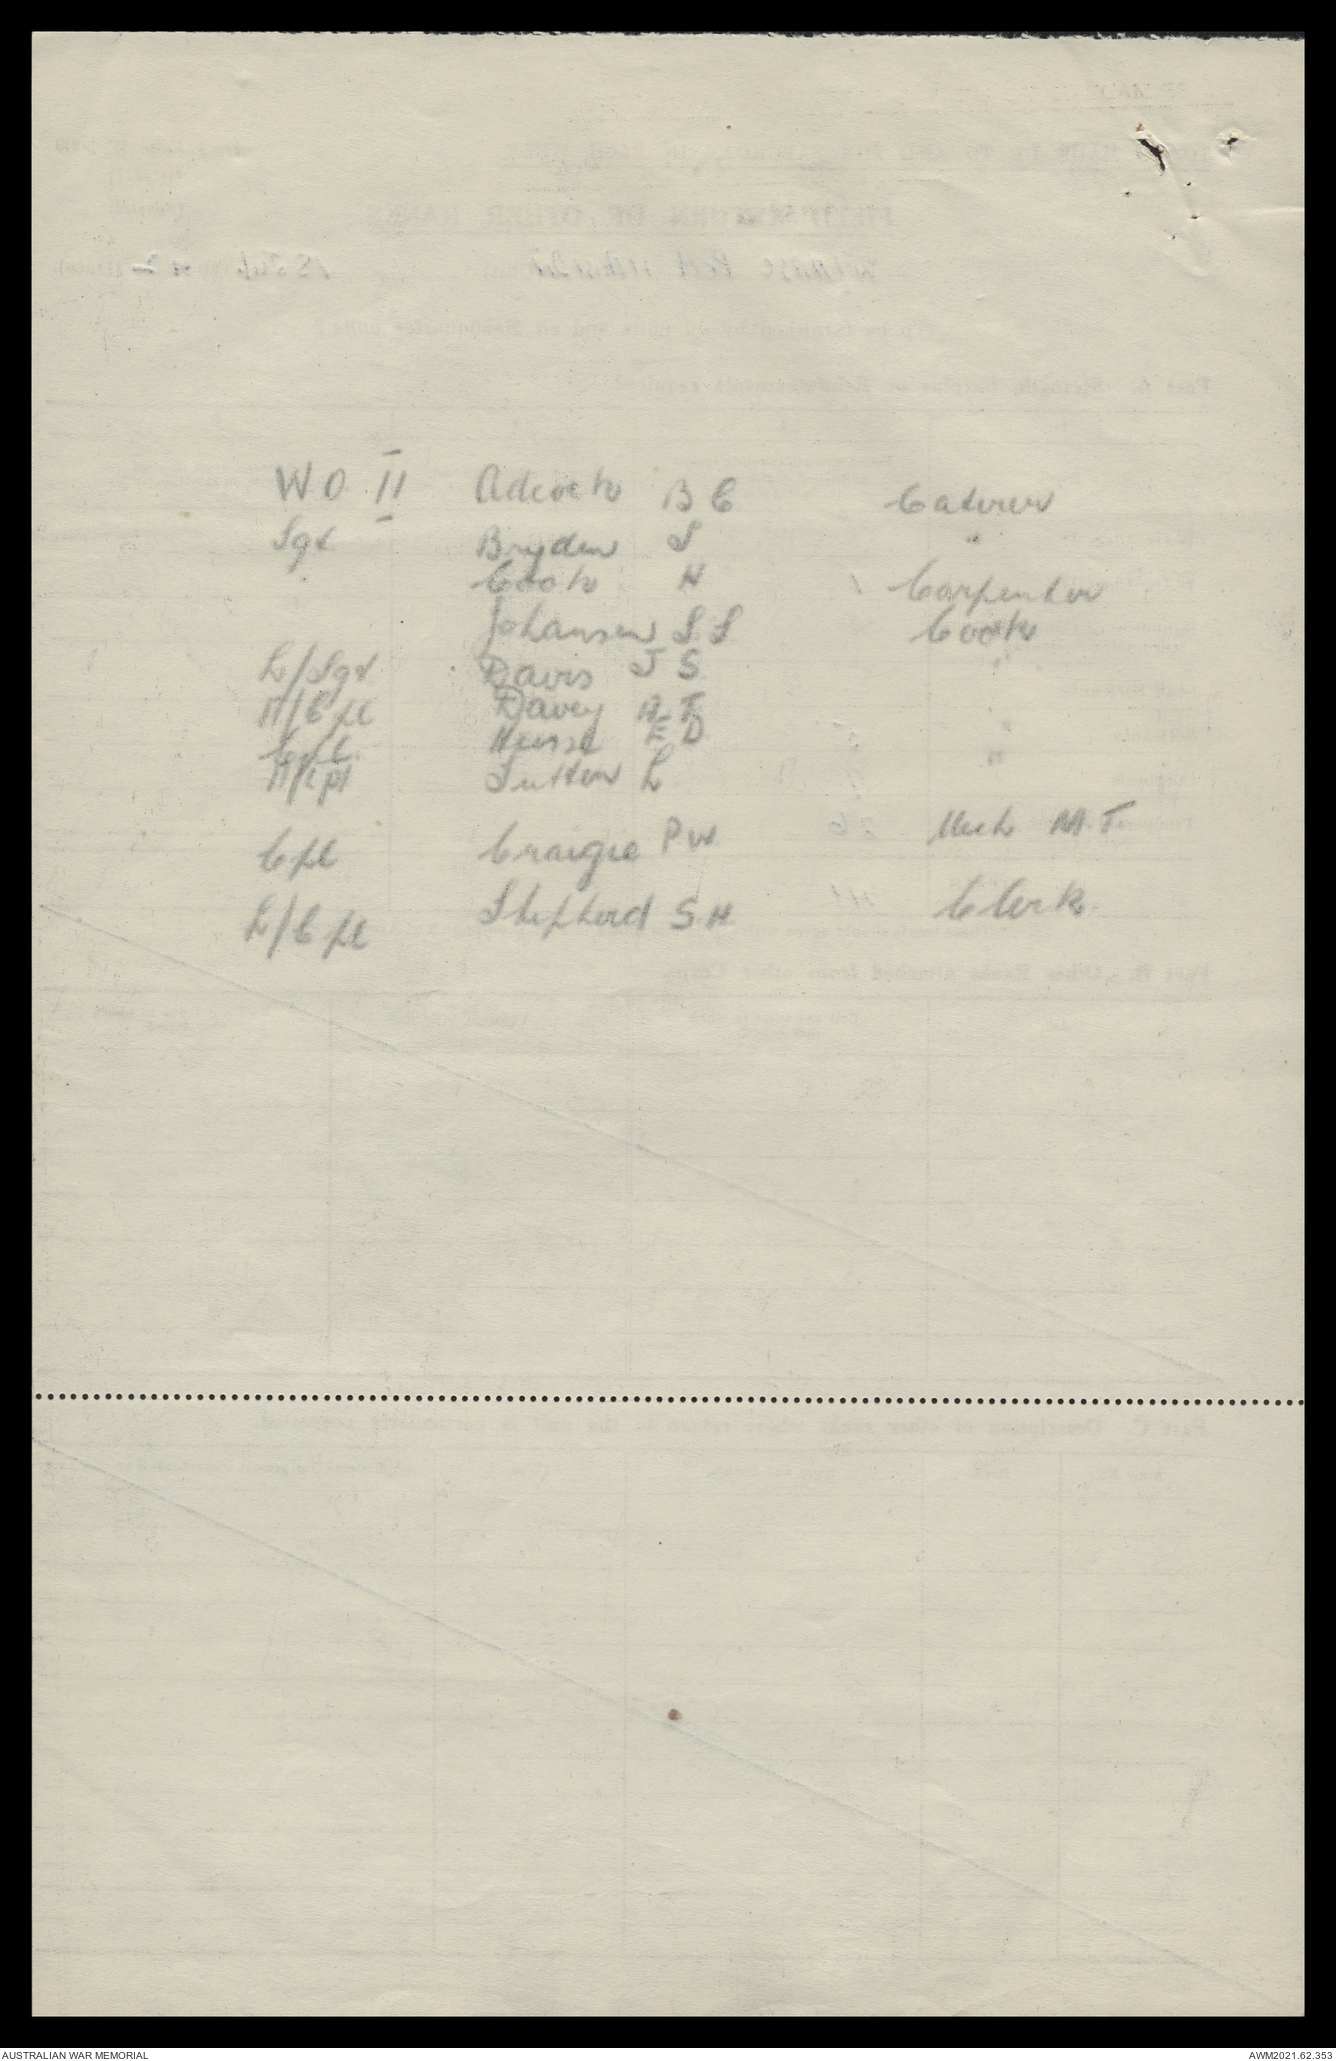 W O II Adcock B C Caterer
Sgt Bryden S "
Cook H Carpenter
Johansen S S Cook
L/Sgt Davis J S "
A/Cpl Davey A T "
Cpl Hesse E D "
A/Cpl Sutton L
Cpl Craigie P W Mech M.T.
L/Cpl Shepherd S H Clerk
AUSTRALIAN WAR MEMORIAL
AWM2021.62.353